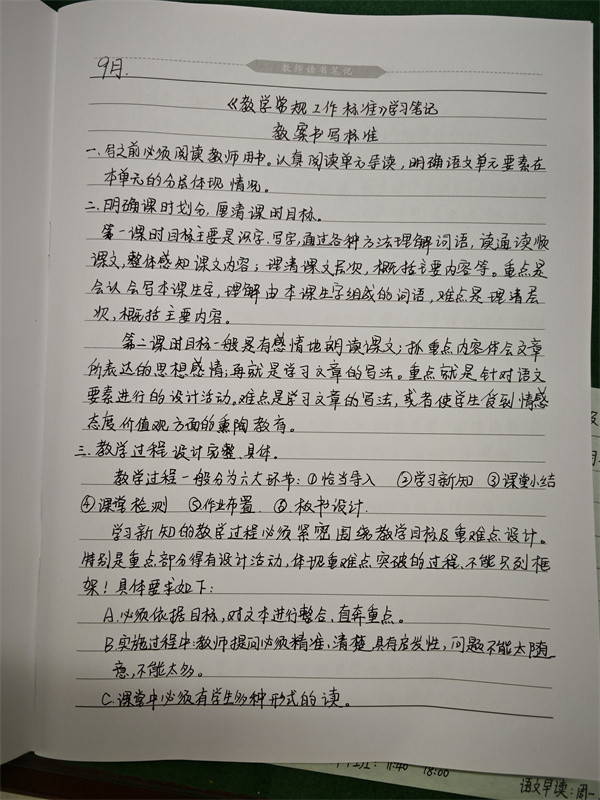 教师读书笔记
9月.
《教学常规工作标准》学习笔记
教案书写标准
一、写之前必须阅读教师用书。认真阅读单元导读，明确语文单元要素在
本单元的分层体现情况。
二、明确课时划分，厘清课时目标。
第一课时目标主要是识字、写字，通过各种方法理解词语，读通读顺
课文，整体感知课文内容；理清课文层次，概括主要内容等。重点是
会认会写本课生字，理解由本课生字组成的词语，难点是理清层
次，概括主要内容。
第二课时目标一般是有感情地朗读课文；抓重点内容体会文章
所表达的思想感情；再就是学习文章的写法。重点就是针对语文
要素进行的设计活动。难点是学习文章的写法，或者使学生受到情感
态度价值观方面的熏陶教育。
三、教学过程设计完整、具体.
教学过程一般分为六大环节：①恰当导入 ②学习新知 ③课堂小结
④课堂检测 ⑤作业布置 ⑥板书设计.
学习新知的教学过程必须紧密围绕教学目标及重难点设计。
特别是重点部分得有设计活动，体现重难点突破的过程、不能只列框
架！具体要求如下：
A.必须依据目标，对文本进行整合，直奔重点。
B.实施过程中：教师提问必须精准、清楚、具有启发性，问题不能太随
意，不能太多。
C.课堂中必须有学生多种形式的读。
11:40 18:00
语文早读：周一